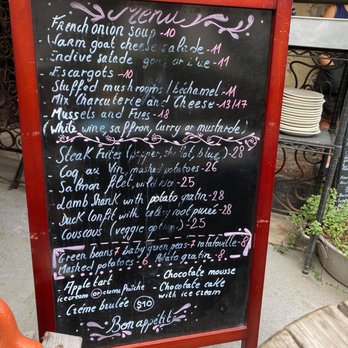 Menu
French onion soup - 10
Warm goat cheese salade - 11
Endive salade
Escargots - 10
Stuffed mushrooms / béchamel - 11
Mix Charcuterie and Cheese - 13/17
Mussels and Fries - 18
(White wine, saffron, curry or mustarde)
Steak frites (pepper, shallot, blue) - 28
Coq au Vin, mashed potatoes - 26
Salmon filet, wild rice - 25
Lamb Shank with potato gratin - 28
Duck Confit with celery root purée - 28
Couscous (veggie option) - 25
Green beans 7 baby green peas - 7 ratatouille - 8
Mashed potatoes - 6 Potato gratin - 8
• Apple tart
icecream or crème fraîche
• Chocolate mousse
• Chocolate cake
with ice cream
• Crème brulée $10
Bon appétit